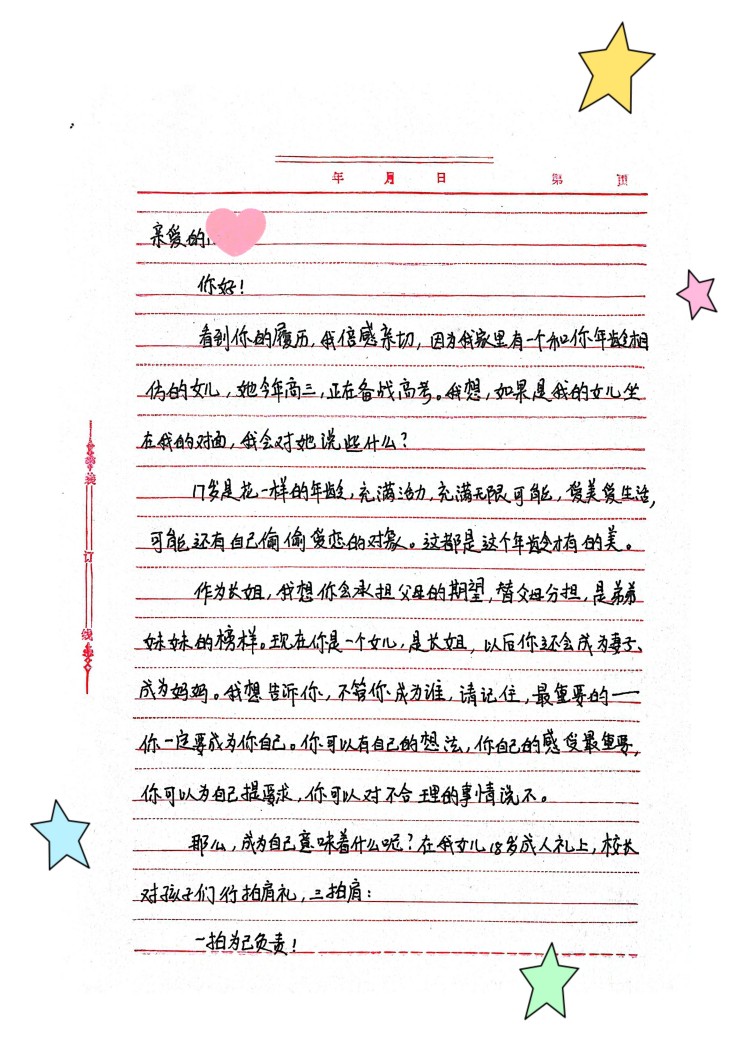 年 月 日 第 页
亲爱的
你好！
看到你的履历，我倍感亲切，因为我家里有一个和你年龄相
仿的女儿，她今年高三，正在备战高考。我想，如果是我的女儿坐
在我的对面，我会对她说些什么？
17岁是花一样的年龄，充满活力，充满无限可能，爱美爱生活，
可能还有自己偷偷爱恋的对象。这都是这个年龄才有的美。
作为长姐，我想你会承担父母的期望，替父母分担，是弟弟
妹妹的榜样。现在你是一个女儿，是长姐，以后你还会成为妻子、
成为妈妈。我想告诉你，不管你成为谁，请记住，最重要的——
你一定要成为你自己。你可以有自己的想法，你自己的感受最重要，
你可以为自己提要求，你可以对不合理的事情说不。
那么，成为自己意味着什么呢？在我女儿18岁成人礼上，校长
对孩子们行拍肩礼，三拍肩：
一拍为己负责！
装
订
线